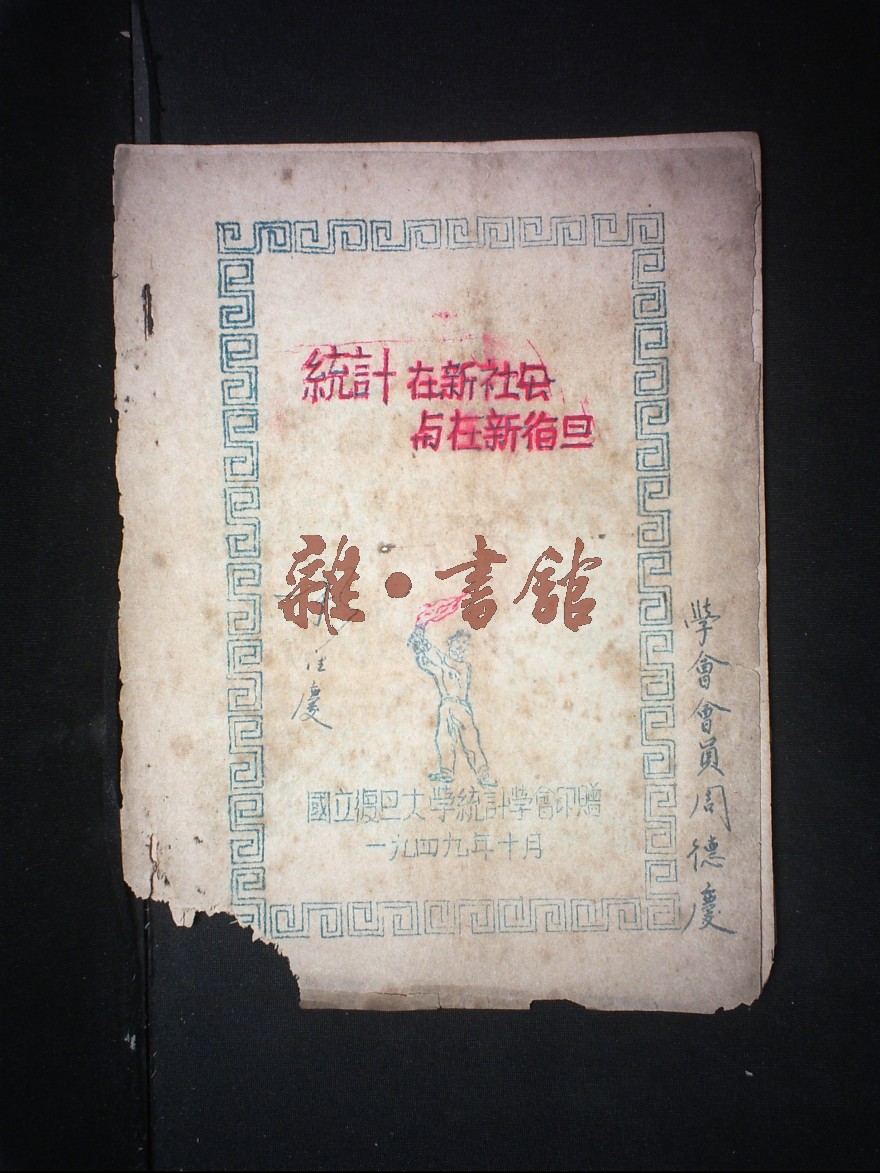 統計 在新社会
与在新復旦
雜·書館
慶
國立復旦大學統計學會印贈
一九四九年十月
學會會員周德慶